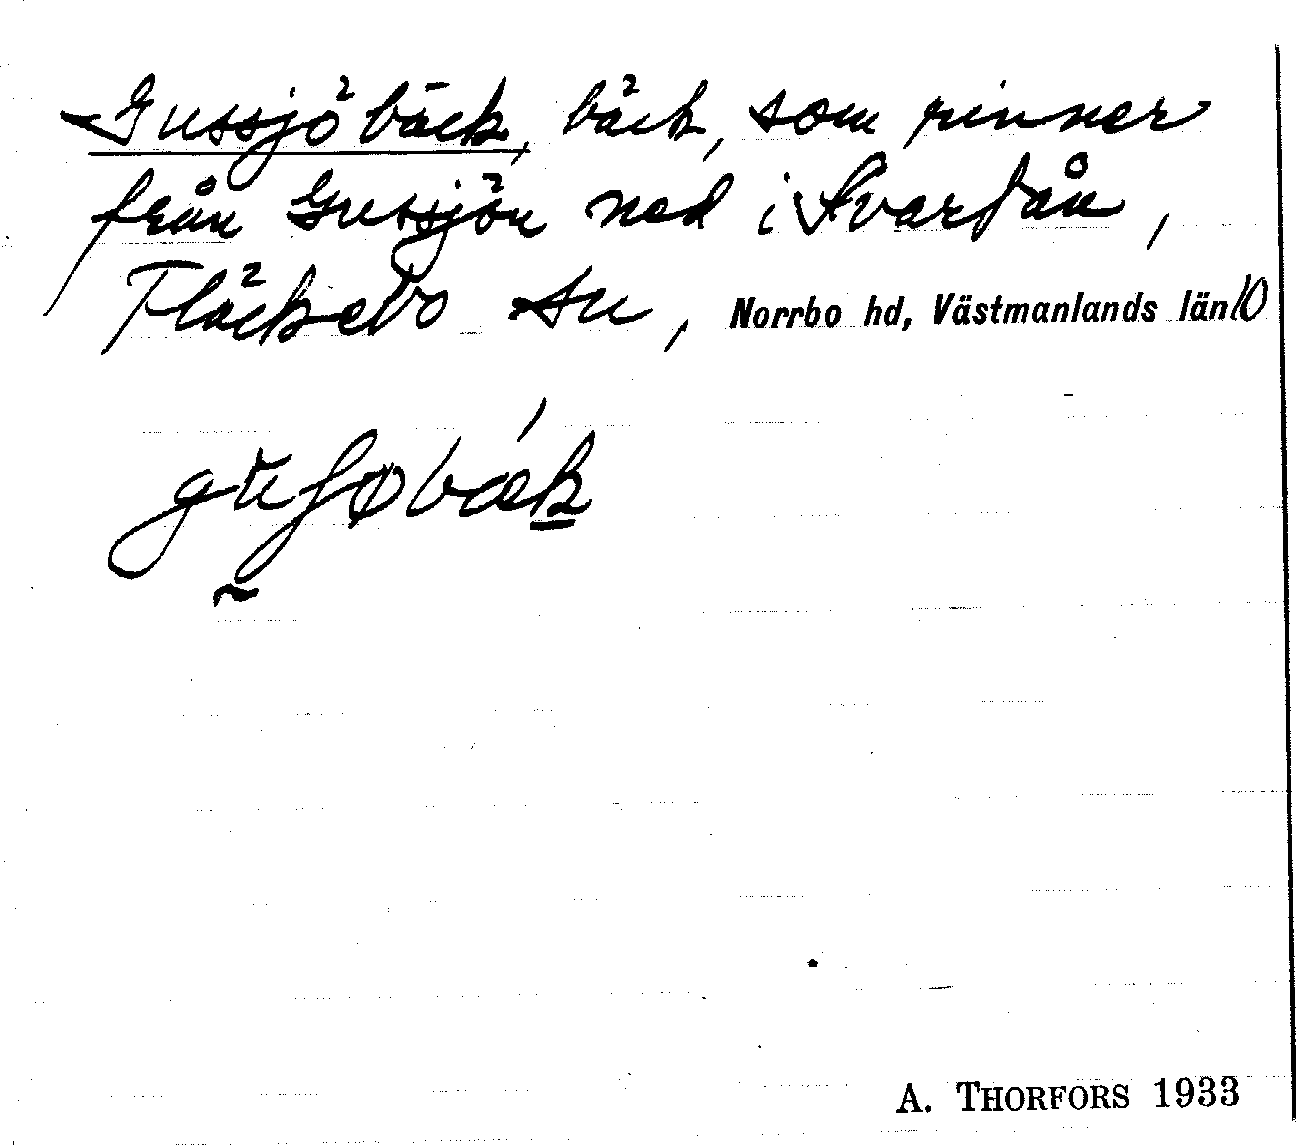 Gussjöbäck, bäck, som rinner
från Gussjön ned i Svartån,
Fläckebo sn, Norrbo hd, Västmanlands län 10
A. THORFORS 1933